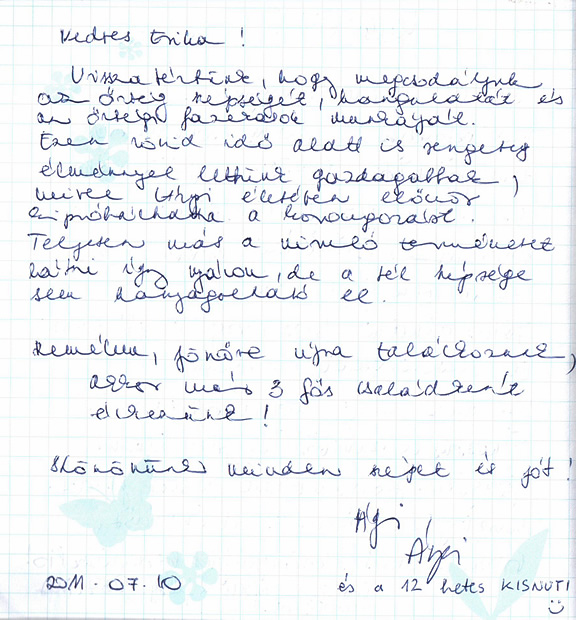 Kedves Erika!
Visszatértünk, hogy megcsodáljuk
az őrség szépségét, hangulatát és
az őrségi fazekasok munkáját.
Ezen rövid idő alatt is rengeteg
élménnyel lettünk gazdagabbak,
mivel Árpi életében először
kipróbálhatta a korongozást.
Teljesen más a viruló természetet
látni így nyáron, de a tél szépsége
sem hanyagolható el.
Remélem, jövőre újra találkozunk,
akkor már 3 fős családként
érkezünk!
Köszönünk minden szépet és jót!
Ági
Árpi
2011.07.10 és a 12 hetes KISNUTI